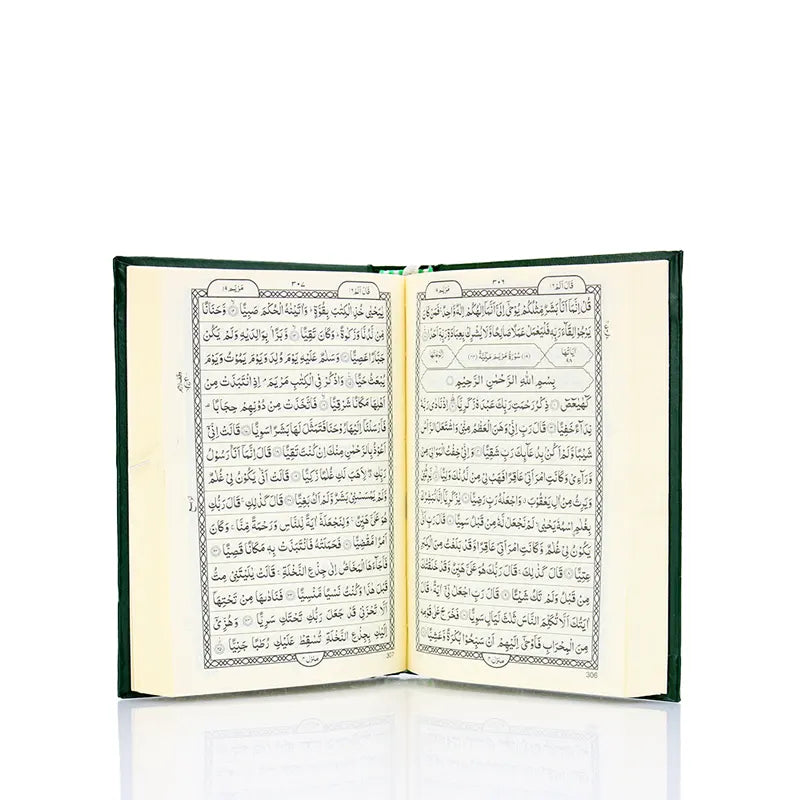 قَالَ اَلَمْ ١٦
٣٠٦
مَرْيَم ١٩
قُلْ اِنَّمَآ اَنَا بَشَرٌ مِّثْلُكُمْ يُوْحٰٓى اِلَيَّ اَنَّمَآ اِلٰهُكُمْ اِلٰهٌ وَّاحِدٌ ۚ فَمَنْ كَانَ
يَرْجُوْا لِقَآءَ رَبِّهٖ فَلْيَعْمَلْ عَمَلًا صَالِحًا وَّلَا يُشْرِكْ بِعِبَادَةِ رَبِّهٖٓ اَحَدًا
اٰيَاتُهَا ٩٨
(١٩) سُوْرَةُ مَرْيَمَ مَكِّيَّةٌ (٤٤)
رُكُوْعَاتُهَا ٦
بِسْمِ اللّٰهِ الرَّحْمٰنِ الرَّحِيْمِ
كٓهٰيٰعٓصٓ ذِكْرُ رَحْمَتِ رَبِّكَ عَبْدَهٗ زَكَرِيَّا اِذْ نَادٰى رَبَّهٗ
نِدَآءً خَفِيًّا قَالَ رَبِّ اِنِّيْ وَهَنَ الْعَظْمُ مِنِّيْ وَاشْتَعَلَ الرَّاْسُ
شَيْبًا وَّلَمْ اَكُنْۢ بِدُعَآئِكَ رَبِّ شَقِيًّا وَاِنِّيْ خِفْتُ الْمَوَالِيَ مِنْ
وَّرَآءِيْ وَكَانَتِ امْرَاَتِيْ عَاقِرًا فَهَبْ لِيْ مِنْ لَّدُنْكَ وَلِيًّا يَّرِثُنِيْ
وَيَرِثُ مِنْ اٰلِ يَعْقُوْبَ وَاجْعَلْهُ رَبِّ رَضِيًّا يٰزَكَرِيَّآ اِنَّا نُبَشِّرُكَ
بِغُلٰمِ ِۨاسْمُهٗ يَحْيٰى لَمْ نَجْعَلْ لَّهٗ مِنْ قَبْلُ سَمِيًّا قَالَ رَبِّ اَنّٰى
يَكُوْنُ لِيْ غُلٰمٌ وَّكَانَتِ امْرَاَتِيْ عَاقِرًا وَّقَدْ بَلَغْتُ مِنَ الْكِبَرِ
عِتِيًّا قَالَ كَذٰلِكَ ۚ قَالَ رَبُّكَ هُوَ عَلَيَّ هَيِّنٌ وَّقَدْ خَلَقْتُكَ
مِنْ قَبْلُ وَلَمْ تَكُ شَيْئًا قَالَ رَبِّ اجْعَلْ لِّيْٓ اٰيَةً ۚ قَالَ
اٰيَتُكَ اَلَّا تُكَلِّمَ النَّاسَ ثَلٰثَ لَيَالٍ سَوِيًّا فَخَرَجَ عَلٰى قَوْمِهٖ
مِنَ الْمِحْرَابِ فَاَوْحٰٓى اِلَيْهِمْ اَنْ سَبِّحُوْا بُكْرَةً وَّعَشِيًّا
مَنْزِل ٤
306
قَالَ اَلَمْ ١٦
٣٠٧
مَرْيَم ١٩
يٰيَحْيٰى خُذِ الْكِتٰبَ بِقُوَّةٍ ۚ وَاٰتَيْنٰهُ الْحُكْمَ صَبِيًّا وَّحَنَانًا
مِّنْ لَّدُنَّا وَزَكٰوةً ۚ وَكَانَ تَقِيًّا وَّبَرًّۢا بِوَالِدَيْهِ وَلَمْ يَكُنْ
جَبَّارًا عَصِيًّا وَسَلٰمٌ عَلَيْهِ يَوْمَ وُلِدَ وَيَوْمَ يَمُوْتُ وَيَوْمَ
يُبْعَثُ حَيًّا وَاذْكُرْ فِي الْكِتٰبِ مَرْيَمَ ۘ اِذِ انْتَبَذَتْ مِنْ
اَهْلِهَا مَكَانًا شَرْقِيًّا فَاتَّخَذَتْ مِنْ دُوْنِهِمْ حِجَابًا
فَاَرْسَلْنَآ اِلَيْهَا رُوْحَنَا فَتَمَثَّلَ لَهَا بَشَرًا سَوِيًّا قَالَتْ اِنِّيْٓ
اَعُوْذُ بِالرَّحْمٰنِ مِنْكَ اِنْ كُنْتَ تَقِيًّا قَالَ اِنَّمَآ اَنَا رَسُوْلُ
رَبِّكِ لِاَهَبَ لَكِ غُلٰمًا زَكِيًّا قَالَتْ اَنّٰى يَكُوْنُ لِيْ غُلٰمٌ
وَّلَمْ يَمْسَسْنِيْ بَشَرٌ وَّلَمْ اَكُ بَغِيًّا قَالَ كَذٰلِكِ ۚ قَالَ رَبُّكِ
هُوَ عَلَيَّ هَيِّنٌ ۚ وَلِنَجْعَلَهٗٓ اٰيَةً لِّلنَّاسِ وَرَحْمَةً مِّنَّا ۚ وَكَانَ
اَمْرًا مَّقْضِيًّا فَحَمَلَتْهُ فَانْتَبَذَتْ بِهٖ مَكَانًا قَصِيًّا
فَاَجَآءَهَا الْمَخَاضُ اِلٰى جِذْعِ النَّخْلَةِ ۚ قَالَتْ يٰلَيْتَنِيْ مِتُّ
قَبْلَ هٰذَا وَكُنْتُ نَسْيًا مَّنْسِيًّا فَنَادٰىهَا مِنْ تَحْتِهَآ
اَلَّا تَحْزَنِيْ قَدْ جَعَلَ رَبُّكِ تَحْتَكِ سَرِيًّا وَهُزِّيْٓ
اِلَيْكِ بِجِذْعِ النَّخْلَةِ تُسٰقِطْ عَلَيْكِ رُطَبًا جَنِيًّا
مَنْزِل ٤
307